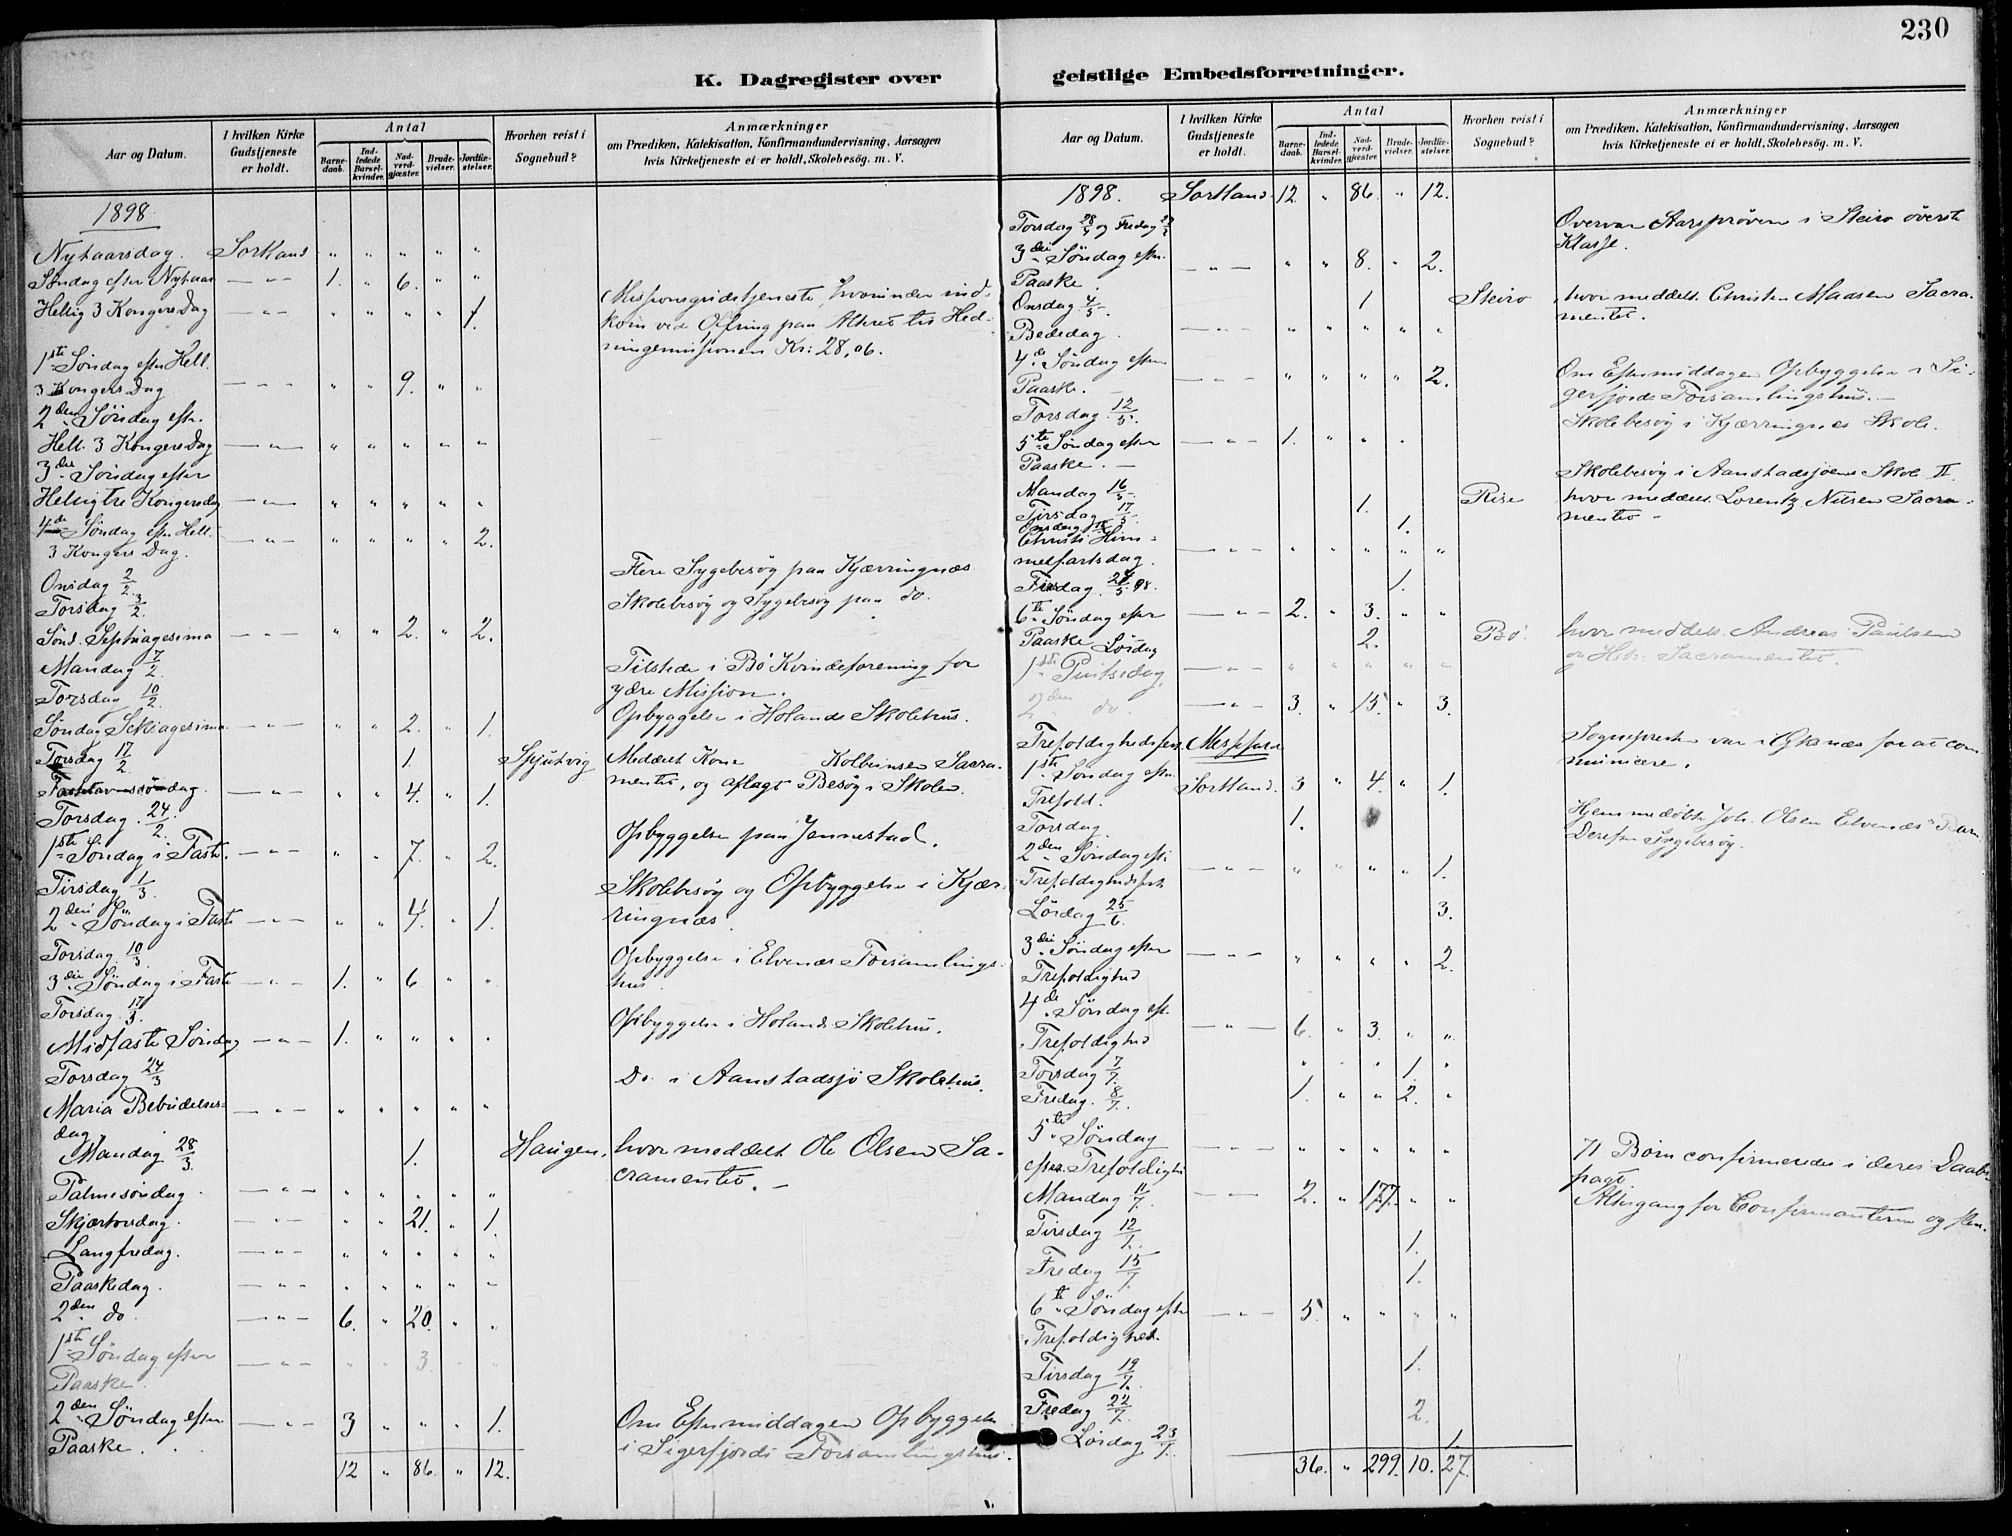 230
K. Dagregister over geistlige Embedsforretninger.
Aar og Datum. I hvilken Kirke Gudstjeneste er holdt. Antal Barnedaab. Indledede Barselkvinder. Nadverdgjæster. Brudevielser. Jordfæstelser. Hvorhen reist i Sognebud? Anmærkninger om Prædiken, Katekisation, Konfirmandundervisning, Aarsagen hvis Kirketjeneste ei er holdt, Skolebesög. m. V.
1898
Nytaarsdag. Sortland " " " " "
Søndag efter Nytaar — " — 1. " 6. " "
Hellig 3 Kongers Dag — " — " " " " 1. Missionsgudstjeneste, hvorunder ind-
kom ved Offring paa Alteret til Hed-
ningemissionen Kr: 28,06.
1ste Søndag efter Hell.
3 Kongers Dag — " — " " 9. " "
2den Søndag efter
Hell. 3 Kongers Dag — " — " " " " "
3die Søndag efter
Hellig tre Kongersdag — " — " " " " "
4de Søndag efter Hell.
3 Kongers Dag. — " — " " " " 2.
Onsdag 2/2. Flere Sygebesøg paa Kjærringnæs
Torsdag 3/2 Skolebesøg og Sygebesøg paa do.
Sönd. Septuagesima — " — " " 2. " 2.
Mandag 7/2. Tilstede i Bø Kvindeforening for
ydre Mission.
Torsdag 10/2 Opbyggelse i Holands Skolehus.
Søndag Sexagesima — " — " " 2. " 1.
Torsdag 17/2 1. Spjutvig Meddelt Kone Kolbeinsen Sacra-
mentet, og aflagt Besøg i Skolen.
Fastelavnssöndag. — " — " " 4. " 1.
Torsdag 24/2. Opbyggelse paa Jennestad.
1ste Søndag i Faste. — " — " " 7. " 2.
Tirsdag 1/3 Skolebesøg og Opbyggelse i Kjær-
ringnæs.
2den Søndag i Faste — " — " " 4. " 1.
Torsdag 10/3. Opbyggelse i Elvenæs Forsamlings-
hus
3die Søndag i Faste — " — 1. " 6. " "
Torsdag 17/3. Opbyggelse i Holands Skolehus.
Midfaste Søndag — " — 1. " " " "
Torsdag 24/3 Do. i Aanstadsjø Skolehus.
Maria Bebudelses-
dag. — " — " " " " "
Mandag 28/3. 1. Haugen, hvor meddelt Ole Olsen Sa-
cramentet. —
Palmesöndag. — " — " " " " "
Skjærtorsdag. — " — " " 21. " 1.
Langfredag. — " — " " " " "
Paaskedag. — " — " " " " "
2den do — " — 6. " 20. " "
1ste Søndag efter
Paaske. — " — " " 3. " "
2den Søndag efter
Paaske. — " — 3 " " " 1. Om Eftermiddagen Opbyggelse
i Sigerfjords Forsamlingshus.
12 " 86. " 12.
Aar og Datum. I hvilken Kirke Gudstjeneste er holdt. Antal Barnedaab. Indledede Barselkvinder. Nadverdgjæster. Brudevielser. Jordfæstelser. Hvorhen reist i Sognebud? Anmærkninger om Prædiken, Katekisation, Konfirmandundervisning, Aarsagen hvis Kirketjeneste ei er holdt, Skolebesög. m. V.
1898. Sortland 12 " 86. " 12.
Torsdag 28/4 og Fredag 29/4 Overvar Aarsprøven i Steiro øverste
Klasse.
3die Søndag efter
Paaske. — " — " " 8. " 2.
Onsdag 4/5. 1 Steiro hvor meddelt Christen Madsen Sacra-
mentet.
Bededag. — " — " " " " "
4de Søndag efter
Paaske. — — " — " " " " 2. Om Eftermiddagen Opbyggelse i Si-
gerfjords Forsamlingshus. —
Torsdag 12/5. Skolebesøg i Kjærringnes Skole.
5te Søndag efter
Paaske. — — " — 1. " " "
Mandag 16/5. Skolebesøg i Aanstadsjøens Skole II.
Tirsdag 17/5. 1. Rise hvor meddelt Lorentz Nilsen Sacra-
mentet —
Onsdag 1.
Christi Him-
melfartsdag. — " — " " " " "
1.
6te Søndag efter
Paaske — " — 2. " 3. " "
Lørdag 2. Bø. hvor meddelt Andreas Paulsen
og Sacramentet.
1ste Pintsedag — " — " " " " "
2den do. — " — 3. " 15. " 3.
Trefoldighedsfest Messefald Sognepresten var i Øksnæs for at com-
municere.
1ste Søndag efter
Trefold. Sortland. 3 " 4. " 1.
Torsdag. 1. Hjemmedøbt Joh. Olsen Elvenæs Barn
Derefter Sygebesøg.
2den Søndag eft.
Trefoldighedsfest — " — " " " " 1.
Lørdag 25/6. 3.
3die Søndag efter
Trefoldighed — " — " " " " 2.
4de Søndag eft.
Trefoldighed — " — 6. " 3. " "
Torsdag 7/7. " " " 1.
Fredag. 8/7. 1. " " 2. "
5te Søndag
efter Trefoldighed — " — " " " " " 71 Børn confirmeredes i deres Daabs-
pagt.
Mandag 11/7. — " — 2. " 177. " " Altergang for Confirmanterne og flere.
Tirsdag 12/7. 1.
Fredag 15/7. 1.
6te Søndag efter
Trefoldighed. — " — 5. " " " "
Tirsdag 19/7. 1.
Fredag 22/7. 2.
Lørdag 23/7. 1.
36. " 299. 10. 27.